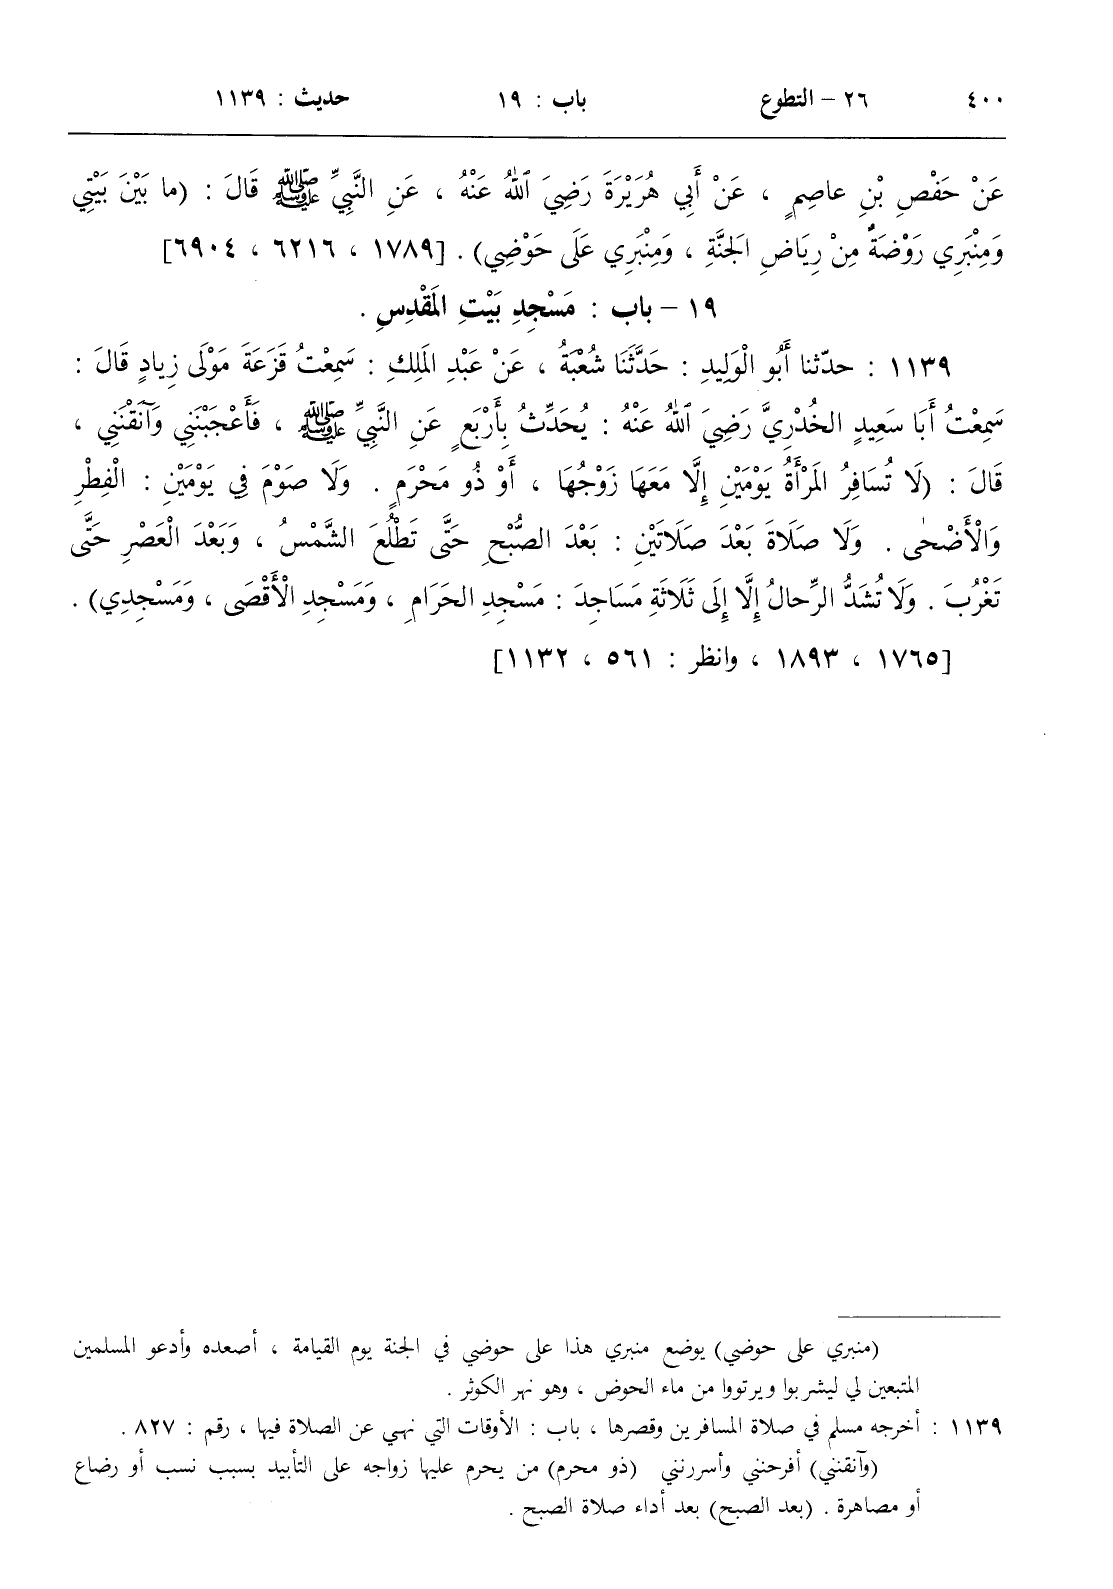 ٤٠٠ ٢٦ – التطوع باب : ١٩ حديث : ١١٣٩
عَنْ حَفْصِ بْنِ عاصِمٍ ، عَنْ أَبِي هُرَيْرَةَ رَضِيَ ٱللهُ عَنْهُ ، عَنِ النَّبِيِّ ﷺ قَالَ : (ما بَيْنَ بَيْتِي
وَمِنْبَرِي رَوْضَةٌ مِنْ رِيَاضِ الجَنَّةِ ، وَمِنْبَرِي عَلَى حَوْضِي) . [١٧٨٩ ، ٦٢١٦ ، ٦٩٠٤]
١٩ – باب : مَسْجِدِ بَيْتِ المَقْدِسِ .
١١٣٩ : حدّثنا أَبُو الْوَلِيدِ : حَدَّثَنَا شُعْبَةُ ، عَنْ عَبْدِ المَلِكِ : سَمِعْتُ قَزَعَةَ مَوْلَى زِيادٍ قَالَ :
سَمِعْتُ أَبَا سَعِيدٍ الخُدْرِيَّ رَضِيَ ٱللهُ عَنْهُ : يُحَدِّثُ بِأَرْبَعٍ عَنِ النَّبِيِّ ﷺ ، فَأَعْجَبْنَنِي وَآنَقْنَنِي ،
قَالَ : (لَا تُسَافِرُ المَرْأَةُ يَوْمَيْنِ إِلَّا مَعَهَا زَوْجُهَا ، أَوْ ذُو مَحْرَمٍ . وَلَا صَوْمَ فِي يَوْمَيْنِ : الْفِطْرِ
وَالْأَضْحٰى . وَلَا صَلَاةَ بَعْدَ صَلَاتَيْنِ : بَعْدَ الصُّبْحِ حَتَّى تَطْلُعَ الشَّمْسُ ، وَبَعْدَ الْعَصْرِ حَتَّى
تَغْرُبَ . وَلَا تُشَدُّ الرِّحالُ إِلَّا إِلَى ثَلَاثَةِ مَسَاجِدَ : مَسْجِدِ الحَرَامِ ، وَمَسْجِدِ الْأَقْصَى ، وَمَسْجِدِي) .
[١٧٦٥ ، ١٨٩٣ ، وانظر : ٥٦١ ، ١١٣٢]
(منبري على حوضي) يوضع منبري هذا على حوضي في الجنة يوم القيامة ، أصعده وأدعو المسلمين
المتبعين لي ليشربوا ويرتووا من ماء الحوض ، وهو نهر الكوثر .
١١٣٩ : أخرجه مسلم في صلاة المسافرين وقصرها ، باب : الأوقات التي نهي عن الصلاة فيها ، رقم : ٨٢٧ .
(وآنقنني) أفرحنني وأسررنني (ذو محرم) من يحرم عليها زواجه على التأبيد بسبب نسب أو رضاع
أو مصاهرة . (بعد الصبح) بعد أداء صلاة الصبح .